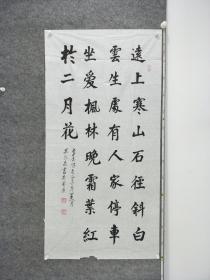 遠上寒山石徑斜白
雲生處有人家停車
坐爱楓林晚霜葉紅
於二月花